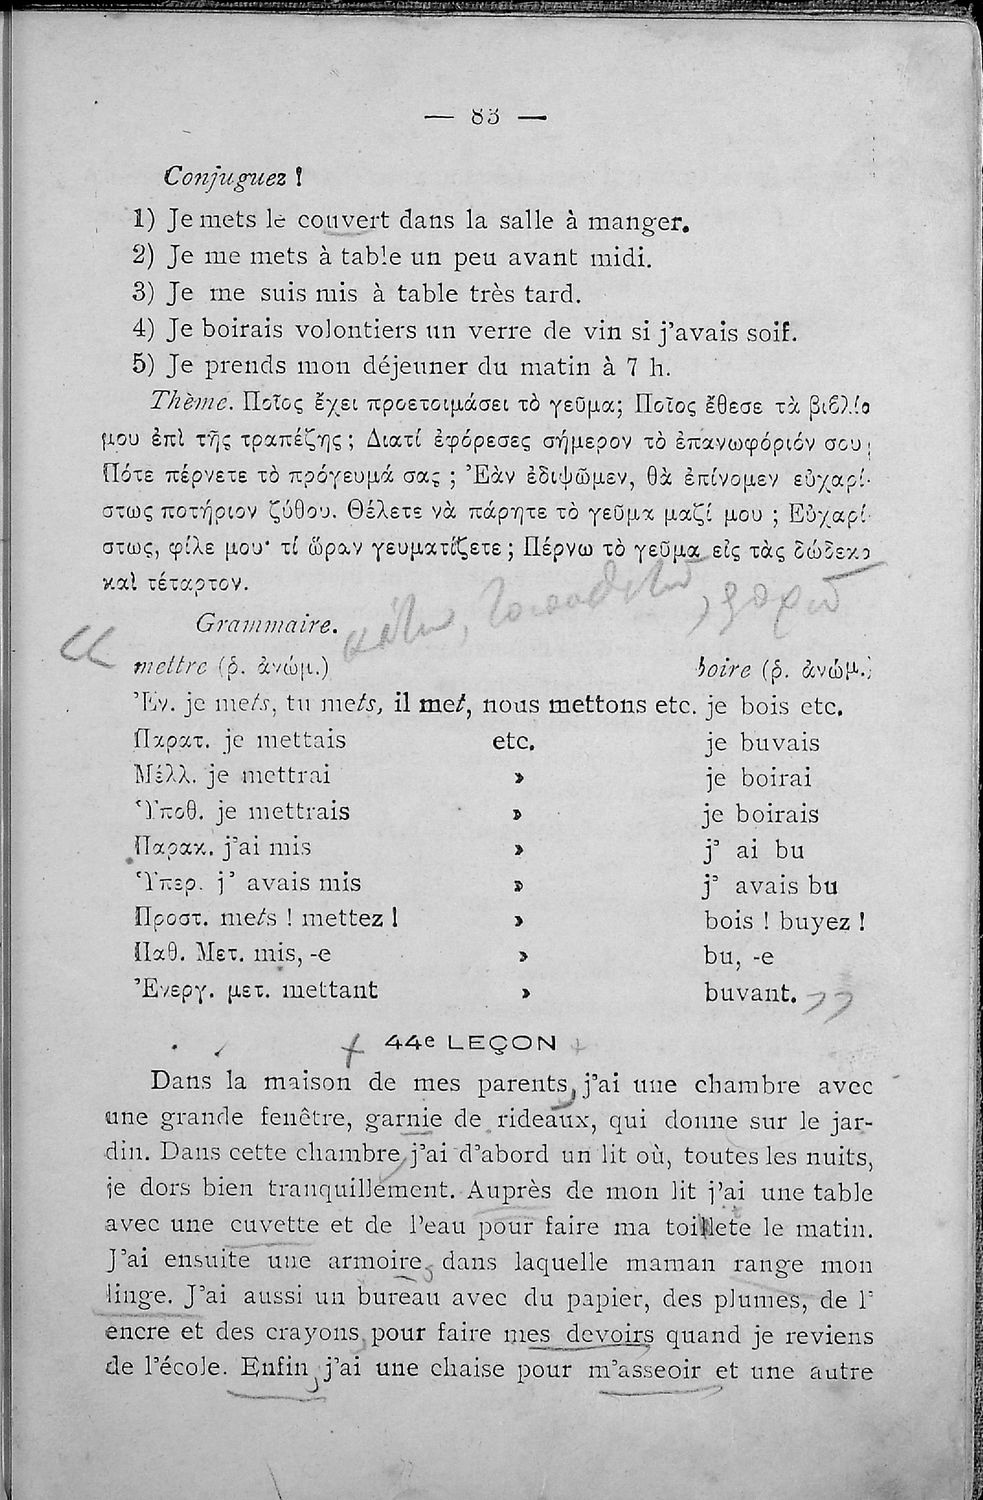 — 83 —
Conjuguez !
1) Je mets le couvert dans la salle à manger.
2) Je me mets à table un peu avant midi.
3) Je me suis mis à table très tard.
4) Je boirais volontiers un verre de vin si j'avais soif.
5) Je prends mon déjeuner du matin à 7 h.
Thème. Ποῖος ἔχει προετοιμάσει τὸ γεῦμα; Ποῖος ἔθεσε τὰ βιβλία
μου ἐπὶ τῆς τραπέζης; Διατί ἐφόρεσες σήμερον τὸ ἐπανωφόριόν σου;
Πότε πέρνετε τὸ πρόγευμά σας; Ἐὰν ἐδιψῶμεν, θὰ ἐπίνομεν εὐχαρί-
στως ποτήριον ζύθου. Θέλετε νὰ πάρητε τὸ γεῦμα μαζί μου; Εὐχαρί-
στως, φίλε μου· τί ὥραν γευματίζετε; Πέρνω τὸ γεῦμα εἰς τὰς δώδεκα
καὶ τέταρτον.
Grammaire.
τοποθετῶ, φορῶ
mettre (ῥ. ἀνώμ.) boire (ῥ. ἀνώμ.)
Ἐν. je mets, tu mets, il met, nous mettons etc. je bois etc.
Παρατ. je mettais etc. je buvais
Μέλλ. je mettrai » je boirai
Ὑποθ. je mettrais » je boirais
Παρακ. j'ai mis » j' ai bu
Ὑπερ. j' avais mis » j' avais bu
Προστ. mets ! mettez ! » bois ! buyez !
Παθ. Μετ. mis, -e » bu, -e
Ἐνεργ. μετ. mettant » buvant.
44e LEÇON
Dans la maison de mes parents, j'ai une chambre avec
une grande fenêtre, garnie de rideaux, qui donne sur le jar-
din. Dans cette chambre, j'ai d'abord un lit où, toutes les nuits,
je dors bien tranquillement. Auprès de mon lit j'ai une table
avec une cuvette et de l'eau pour faire ma toillete le matin.
J'ai ensuite une armoire, dans laquelle maman range mon
linge. J'ai aussi un bureau avec du papier, des plumes, de l'
encre et des crayons, pour faire mes devoirs quand je reviens
de l'école. Enfin, j'ai une chaise pour m'asseoir et une autre